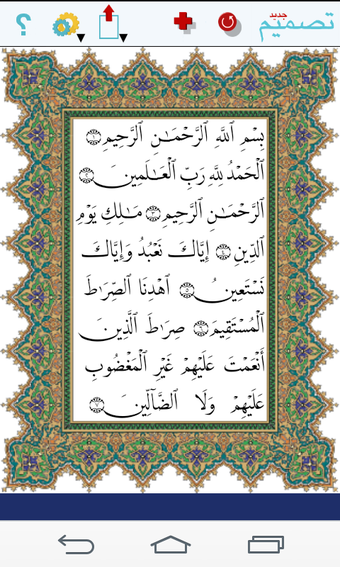 ؟
تصميم
جديد
بِسْمِ ٱللَّهِ ٱلرَّحْمَٰنِ ٱلرَّحِيمِ ۝١
ٱلْحَمْدُ لِلَّهِ رَبِّ ٱلْعَٰلَمِينَ ۝٢
ٱلرَّحْمَٰنِ ٱلرَّحِيمِ ۝٣ مَٰلِكِ يَوْمِ
ٱلدِّينِ ۝٤ إِيَّاكَ نَعْبُدُ وَإِيَّاكَ
نَسْتَعِينُ ۝٥ ٱهْدِنَا ٱلصِّرَٰطَ
ٱلْمُسْتَقِيمَ ۝٦ صِرَٰطَ ٱلَّذِينَ
أَنْعَمْتَ عَلَيْهِمْ غَيْرِ ٱلْمَغْضُوبِ
عَلَيْهِمْ وَلَا ٱلضَّآلِّينَ ۝٧